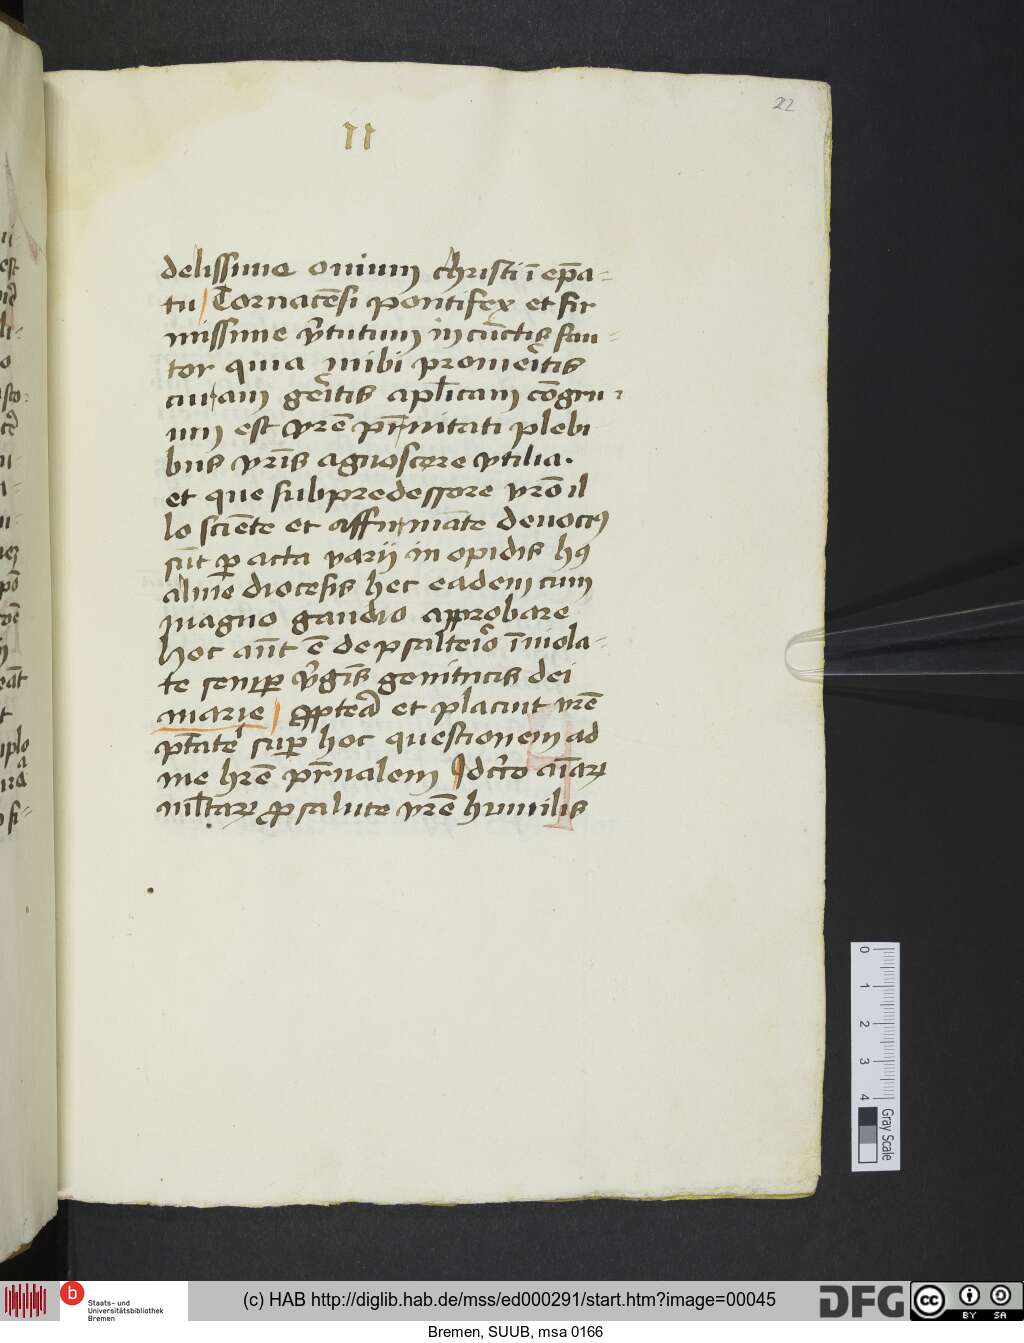 22
11
delissime oniūm christi ī ep̄a-
tu Tornacēsi pontifex et fir
missime v̄tutum in cūctis fau-
tor quia mihi promeītis
curam geītis apl̄icam cōgru
um est vrē pr̄nitati plebi
bus vrīs agnoscere vtilia.
et que sub predessore vrō il
lo sciēte et affirmāte deuocius
sūt ꝑ acta varij in opidis hꝰ
alme diocesis hec eadem cum
magno gaudio approbare
hoc aūt ē de psalteīo īuiola-
te semꝑ v̄gīs genitricis dei
marie et placuit vrē
ptāte suꝑ hoc questionem ad
me hrē pr̄nalem Idcīro aīaꝝ
ml̄taꝝ ꝓ salute vrē humilis
0 1 2 3 4
Gray Scale
b
Staats- und
Universitätsbibliothek
Bremen
(c) HAB http://diglib.hab.de/mss/ed000291/start.htm?image=00045
DFG
cc BY SA
Bremen, SUUB, msa 0166